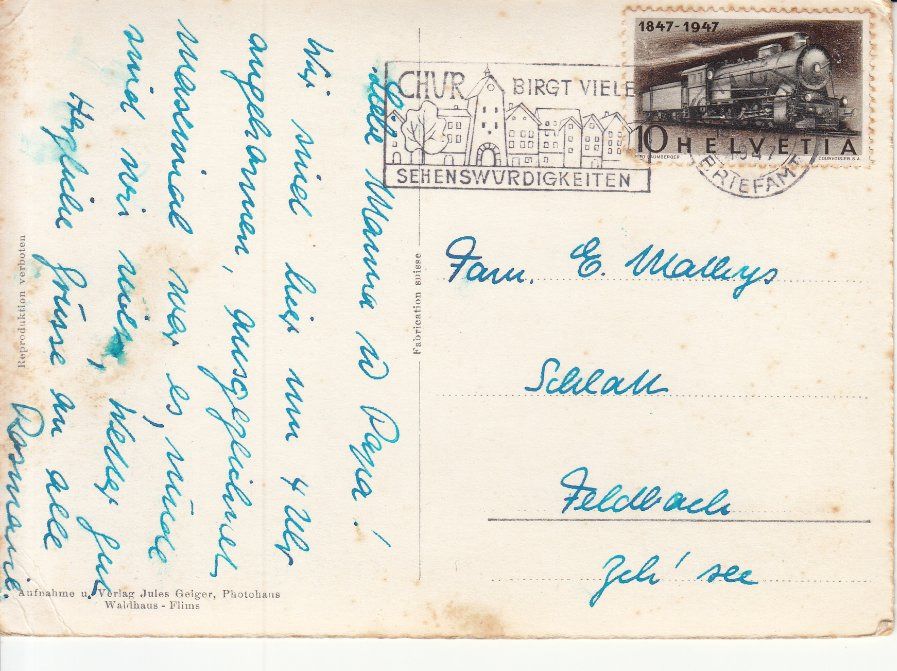 1847-1947
10 HELVETIA
COURVOISIER S.A.
CHUR BIRGT VIELE
SEHENSWÜRDIGKEITEN
ERTEFAM
Liebe Mama u Papa!
Wir sind hier um 4 Uhr
angekommen, ausgezeichnet.
war es, müde
sind wir nicht, Wetter gut
Herzliche Grüsse an alle
Rosmarie.
Fam. E. Mathys
Schlatt
Feldbach
Zch' see
Fabrication suisse
Reproduktion verboten
Aufnahme u. Verlag Jules Geiger, Photohaus
Waldhaus - Flims